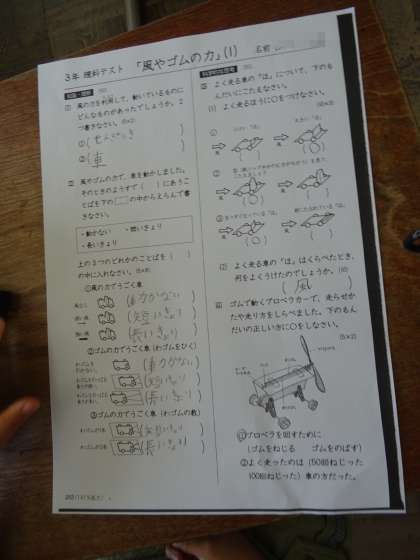 3年 理科テスト 「風やゴムの力」(1) 名前
1 風の力を利用して、動いているものに
どんなものがあったでしょうか。2
つ書きなさい。(5×2)
①(せんぷうき)
②(車)
2 風やゴムの力で、車を動かしました。
そのときのようすで( )にあうこ
とばを下の□の中からえらんで書
きなさい。
・動かない ・短いきょり
・長いきょり
上の3つのどれかのことばを( )
の中に入れなさい。(5×8)
①風の力でうごく車
風なし (動かない)
弱い風 (短いきょり)
強い風 (長いきょり)
②ゴムの力でうごく車(わゴムをひく)
(動かない)
(短いきょり)
(長いきょり)
③ゴムの力でうごく車(わゴムの数)
(短いきょり)
(長いきょり)
3 よく走る車の「ほ」について、下のも
んだいにこたえなさい。
(1) よく走るほうに○をつけなさい。
① 小さい「ほ」 大きい「ほ」
風 ( ) 風 (○)
②
③
(2) よく走る車の「ほ」はくらべたとき、
何をよくうけたのでしょうか。
(風)
4 ゴムで動くプロペラカーで、走らせか
たや走り方をしらべました。下のもん
だいの正しい方に○をしなさい。
(5×2)
①プロペラを回すために
(ゴムをねじる ゴムをのばす)
②よく走ったのは(50回ねじった
100回ねじった)車の方だった。